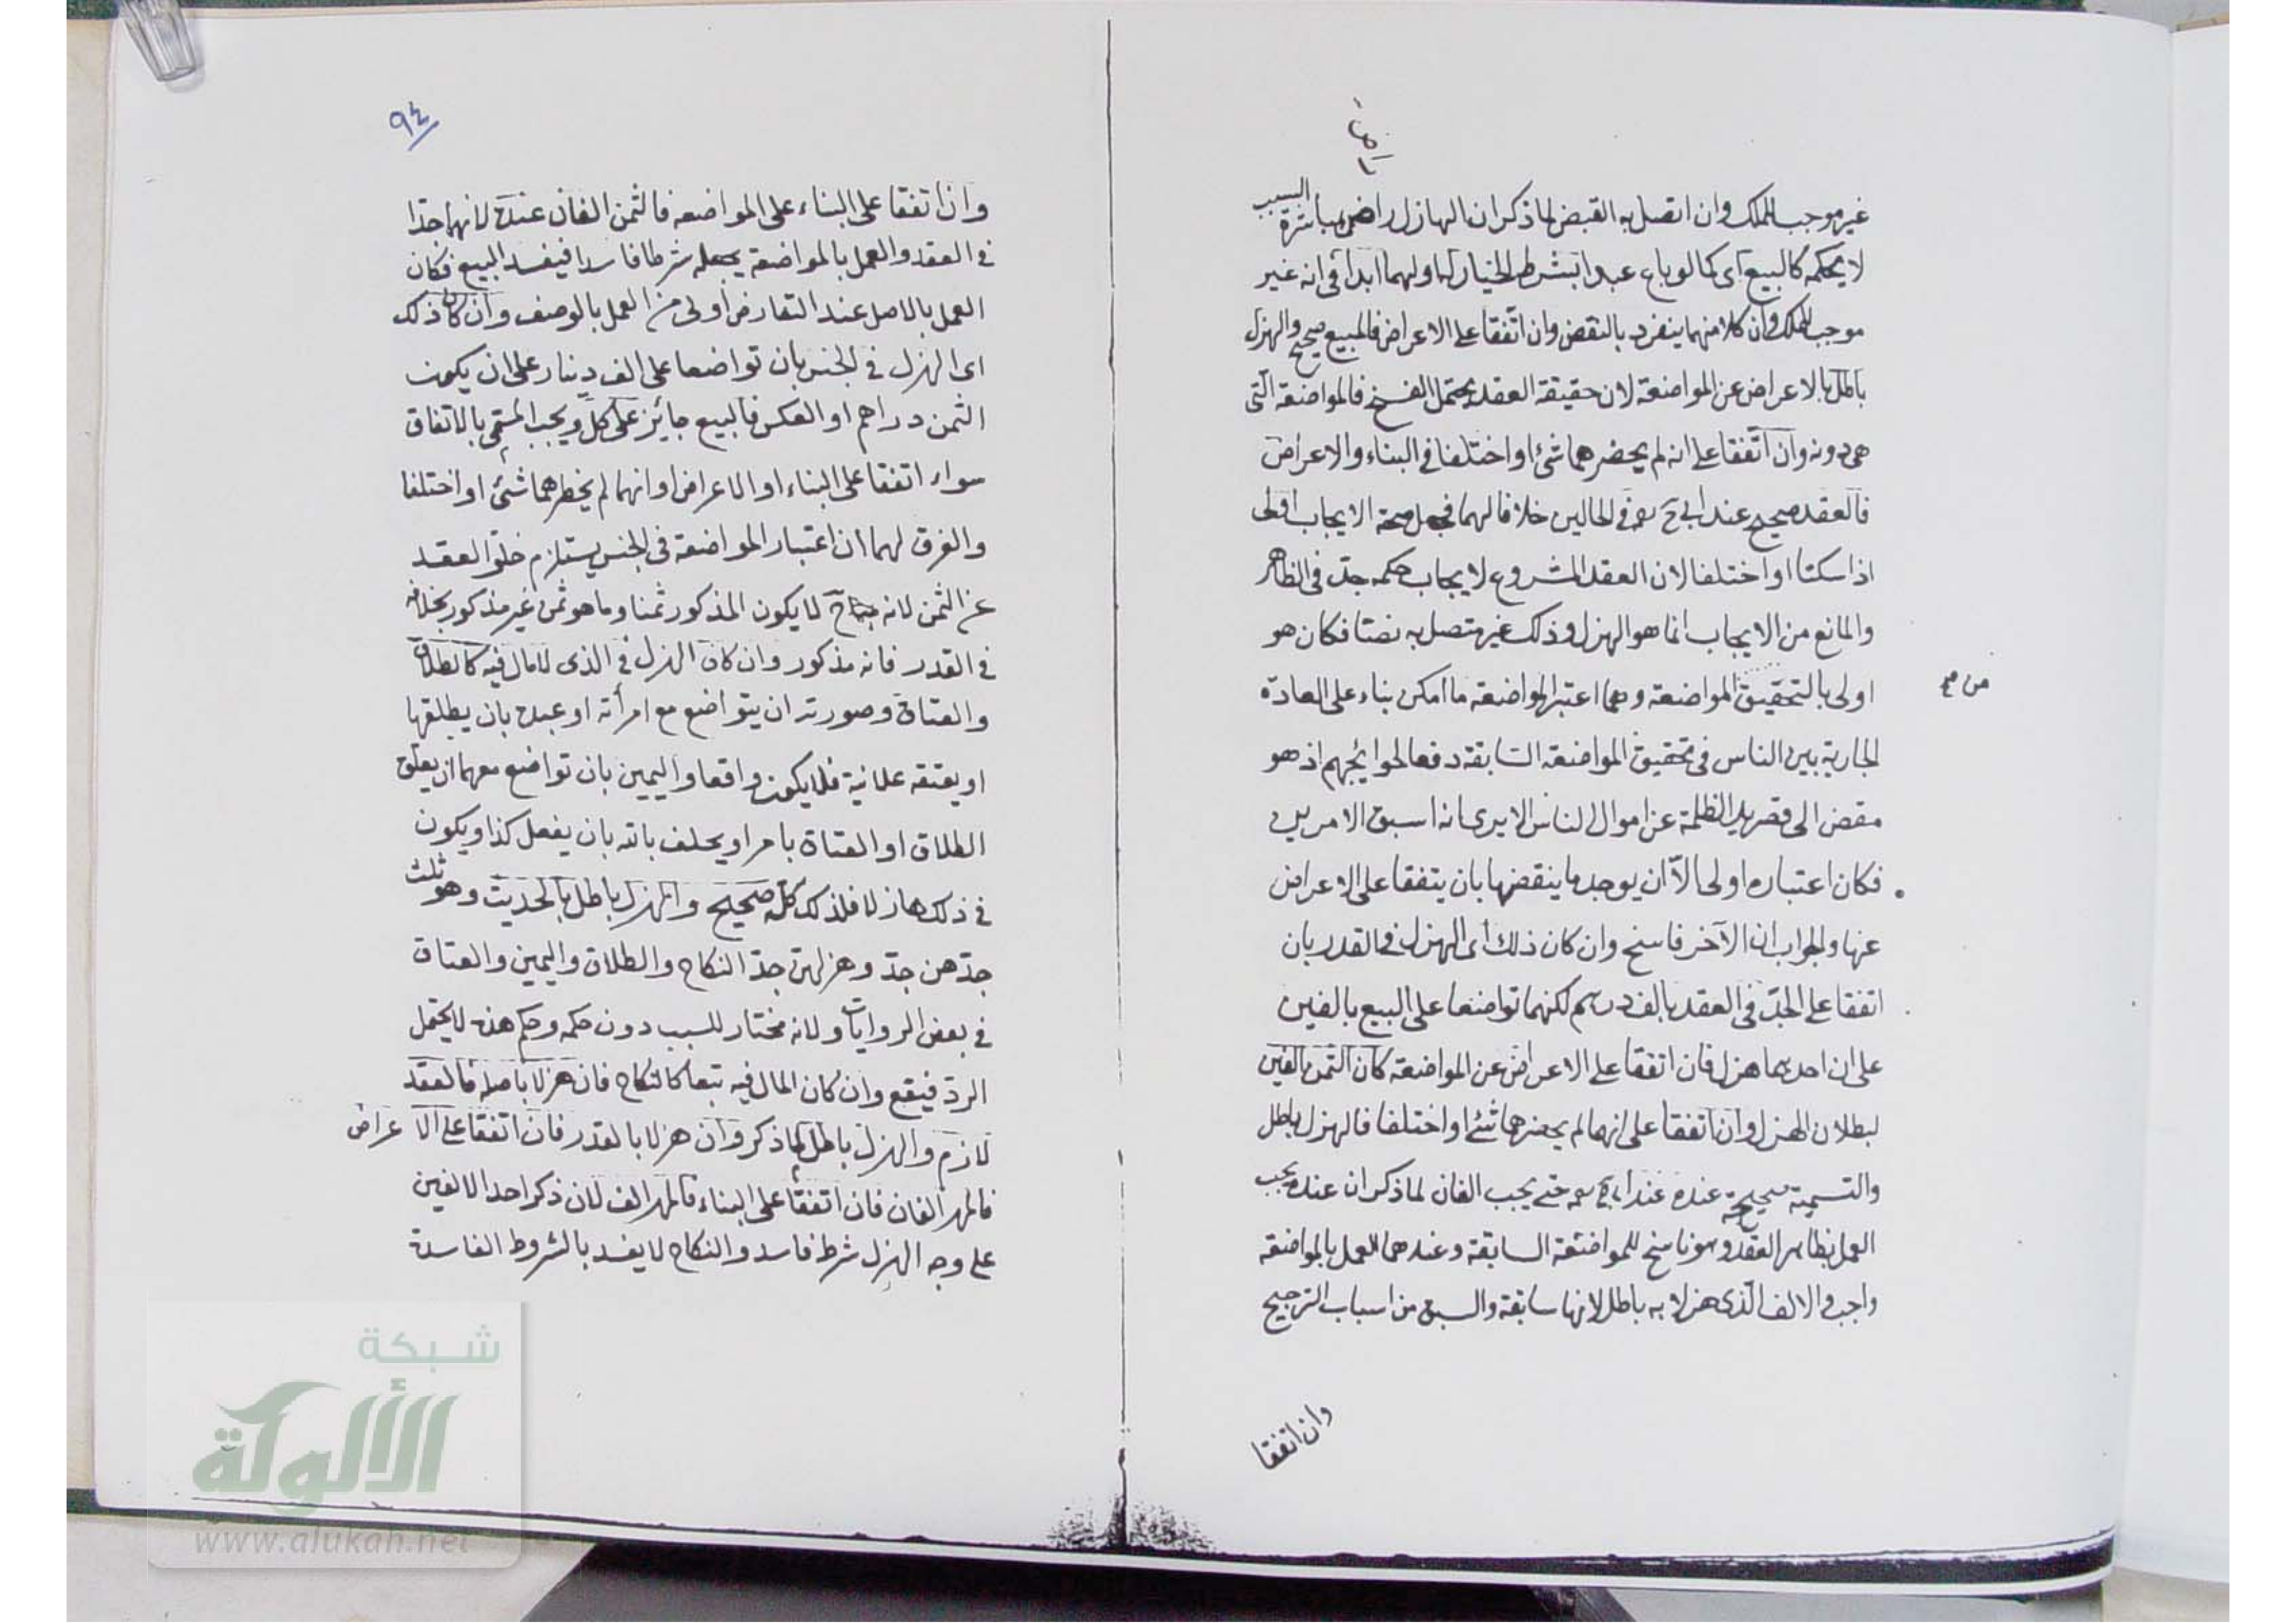 غير موجب للملك وان اتصل به القبض لما ذكر ان الهازل راض بمباشرة السبب
لا بحكمه كالبيع اى كما لو باع عبدا بشرط الخيار له او لهما ابدا فى انه غير
موجب للملك وان كلا منهما ينفرد بالنقض وان اتفقا على الاعراض فالمبيع صحيح والهزل
باطل بالاعراض عن المواضعة لان حقيقة العقد يحتمل الفسخ فالمواضعة التى
هى دونه وان اتفقا على انه لم يحضرهما شئ او اختلفا فى البناء والاعراض
فالعقد صحيح عند ابى ح رمه فى الحالين خلافا لهما فجعل صحة الايجاب اولى
اذا سكتا او اختلفا لان العقد المشروع لايجاب حكمه جد فى الظاهر
والمانع من الايجاب انما هو الهزل وذلك غير متصل به نصا فكان هو
اولى بالتحقيق المواضعة وهما اعتبرا المواضعة ما امكن بناء على العادة
من مح
الجارية بين الناس فى تحقيق المواضعة السابقة دفعا لحوايجهم اذ هو
مفض الى قصر يد الظلمة عن اموال الناس الا يرى انه اسبق الامرين
فكان اعتباره اولى الا ان يوجد ما ينقضها بان يتفقا على الاعراض
عنها والجواب ان الآخر فاسخ وان كان ذلك اى الهزل فى القدر بان
اتفقا على الجد فى العقد بالف درهم لكنهما تواضعا على البيع بالفين
على ان احدهما هزل فان اتفقا على الاعراض عن المواضعة كان الثمن الفين
لبطلان الهزل وان اتفقا على انهما لم يحضرهما شئ او اختلفا فالهزل باطل
والتسمية صحيحة عنده عند ابى ح رمه حتى يجب الفان لما ذكر ان عنده يجب
العمل بظاهر العقد وهو ناسخ للمواضعة السابقة وعندهما العمل بالمواضعة
واجب والالف الذى هزلا به باطل لانها سابقة والسبق من اسباب الترجيح
وان اتفقا
٩٤
وان اتفقا على البناء على المواضعه فالثمن الفان عنده لانهما جدا
فى العقد والعمل بالمواضعة يجعله شرطا فاسدا فيفسد البيع فكان
العمل بالاصل عند التعارض اولى من العمل بالوصف وان كان ذلك
اى الهزل فى الجنس بان تواضعا على الف دينار على ان يكون
الثمن دراهم او العكس فالبيع جائز على كل ويجب المسمى بالاتفاق
سواء اتفقا على البناء او الاعراض او انهما لم يخطرهما شئ او اختلفا
والفرق لهما ان اعتبار المواضعة فى الجنس يستلزم خلو العقد
عن الثمن لانه ح لا يكون المذكور ثمنا وما هو ثمن غير مذكور بخلافه
فى القدر فانه مذكور وان كان الهزل فى الذى لا مال فيه كالطلاق
والعتاق وصورته ان يتواضع مع امرأته او عبده بان يطلقها
او يعتقه علانية فلا يكون واقعا واليمين بان تواضع معهما ان يعلق
الطلاق او العتاق بامر او يحلف بالله بان يفعل كذا ويكون
فى ذلك هازلا فلذلك كله صحيح والهزل باطل بالحديث وهو ثلث
جدهن جد وهزلهن جد النكاح والطلاق واليمين والعتاق
فى بعض الروايات ولانه مختار للسبب دون حكمه وحكم هذه لا يحتمل
الرد فيقع وان كان المال فيه تبعا كالنكاح فان هزلا باصله فالعقد
لازم والهزل باطل لما ذكر وان هزلا بالقدر فان اتفقا على الاعراض
فالمهر الفان فان اتفقا على البناء فالمهر الف لان ذكر احد الالفين
على وجه الهزل شرط فاسد والنكاح لا يفسد بالشروط الفاسدة
شبكة
الألوكة
www.alukah.net